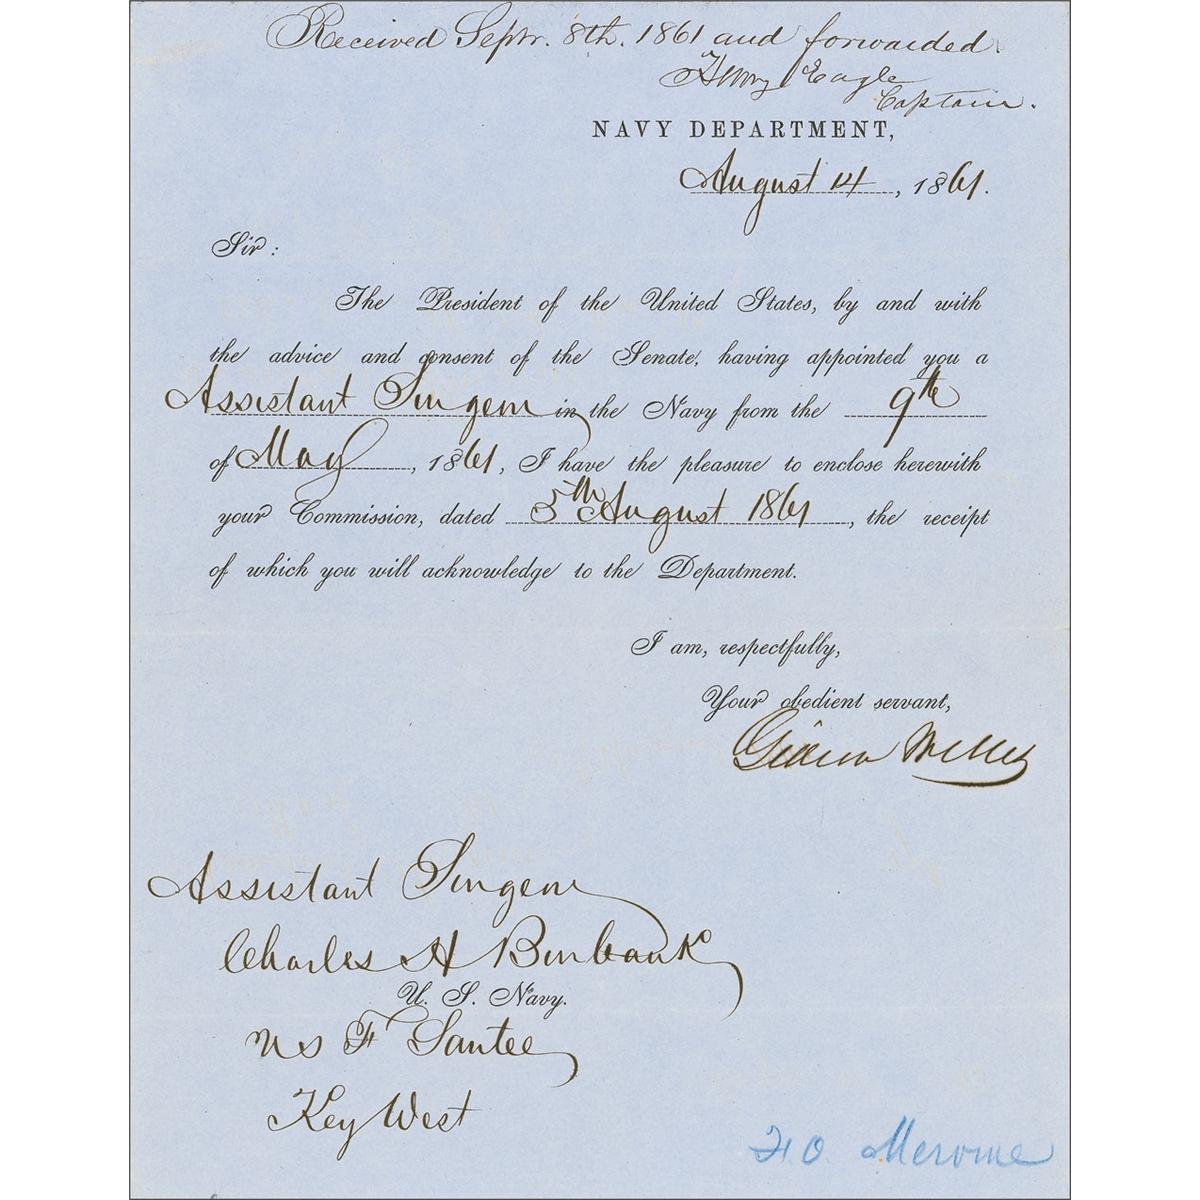 Received Septr. 8th. 1861 and forwarded
Henry Eagle
Captain.
NAVY DEPARTMENT,
August 14, 1861.
Sir:
The President of the United States, by and with
the advice and consent of the Senate, having appointed you a
Assistant Surgeon in the Navy from the 9th
of May, 1861, I have the pleasure to enclose herewith
your Commission, dated 5th August 1861, the receipt
of which you will acknowledge to the Department.
I am, respectfully,
Your obedient servant,
Gideon Welles
Assistant Surgeon
Charles H Burbank
U. S. Navy.
US F Santee
Key West